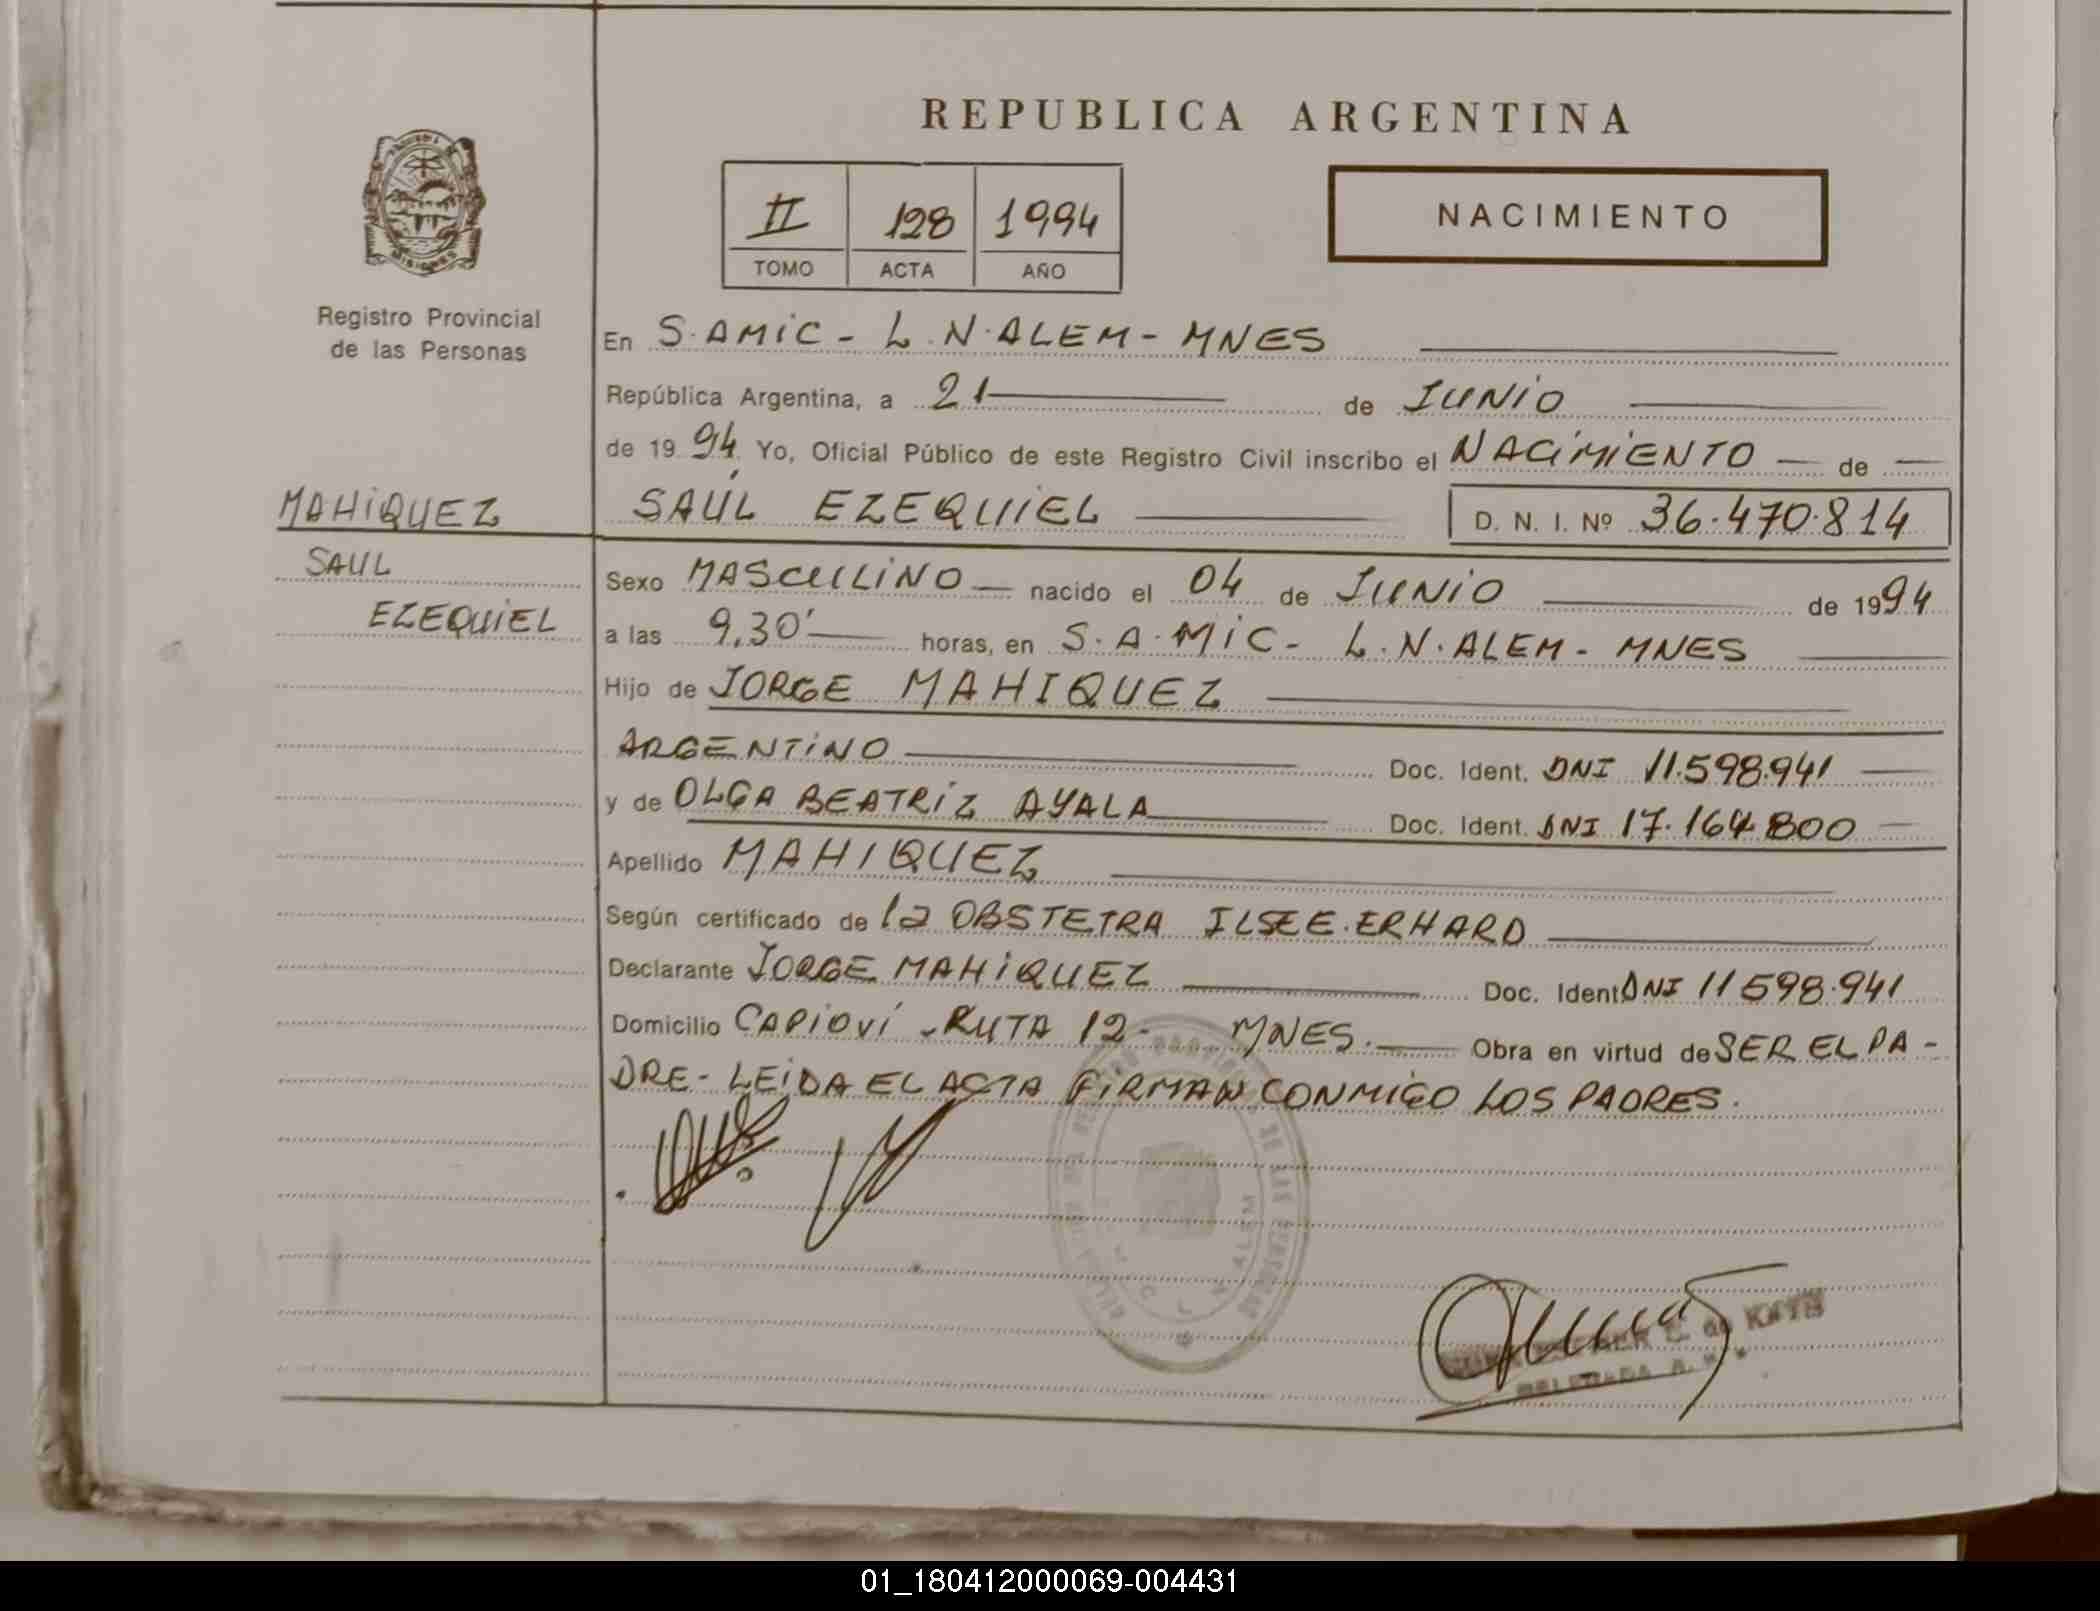 REPUBLICA ARGENTINA
II 128 1994
TOMO ACTA AÑO
NACIMIENTO
Registro Provincial
de las Personas
En S. AMIC - L. N. ALEM - MNES
República Argentina, a 21 de JUNIO
de 1994 Yo, Oficial Público de este Registro Civil inscribo el NACIMIENTO de
MAHIQUEZ
SAÚL EZEQUIEL D. N. I. Nº 36.470.814
SAUL
EZEQUIEL
Sexo MASCULINO nacido el 04 de JUNIO de 1994
a las 9,30' horas, en S. A. MIC - L. N. ALEM - MNES
Hijo de JORGE MAHIQUEZ
ARGENTINO Doc. Ident. DNI 11.598.941
y de OLGA BEATRIZ AYALA Doc. Ident. DNI 17.164.800
Apellido MAHIQUEZ
Según certificado de la OBSTETRA ILSE E. ERHARD
Declarante JORGE MAHIQUEZ Doc. Ident DNI 11598.941
Domicilio CAPIOVÍ - RUTA 12 - MNES. Obra en virtud de SER EL PA-
DRE - LEIDA EL ACTA FIRMAN CONMIGO LOS PADRES.
01_180412000069-004431